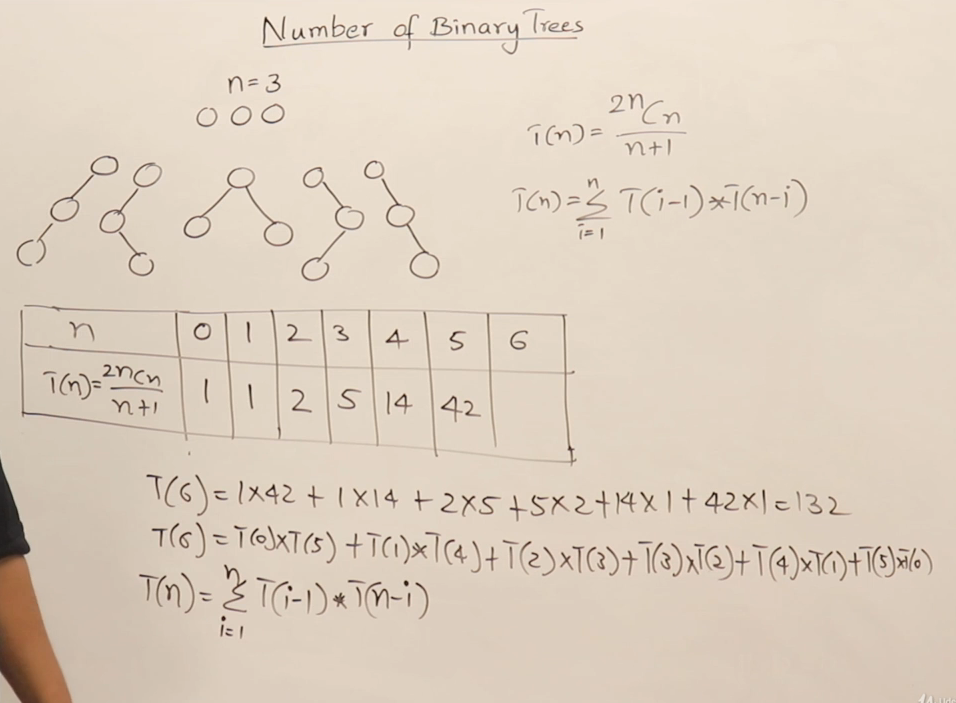 Number of Binary Trees
n=3
T(n)= 2nCn / n+1
T(n)= n Σ i=1 T(i-1)*T(n-i)
n 0 1 2 3 4 5 6
T(n)= 2nCn / n+1 1 1 2 5 14 42
T(6)=1×42 + 1×14 + 2×5 +5×2+14×1+42×1=132
T(6)=T(0)×T(5) +T(1)*T(4)+T(2)×T(3)+T(3)×T(2)+T(4)×T(1)+T(5)×T(0)
T(n)= n Σ i=1 T(i-1)*T(n-i)